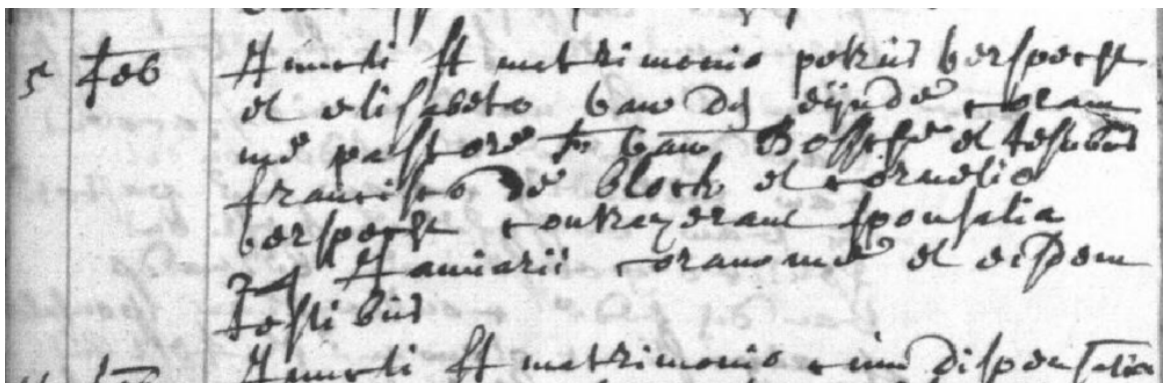 5 feb Juncti st matrimonio petrus verspecht
et elisabeto van dẽ eijnde coram
me pastore van Bossche et testibus
francisco de block et cornelio
verspecht contraxerant sponsalia
24 Januarii coram me et eisdem
testibus
Juncti st matrimonio cum dispensatio